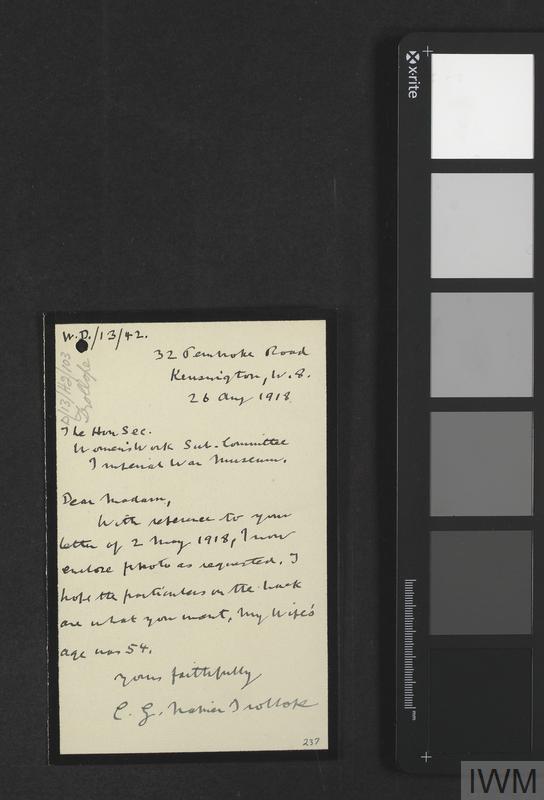 W.D./13/42.
D/13/42/103
Trollope
32 Pembroke Road
Kensington, W.8.
26 Aug 1918
The Hon Sec.
Women's Work Sub-Committee
Imperial War Museum.
Dear Madam,
With reference to your
letter of 2 May 1918, I now
enclose photo as requested. I
hope the particulars on the back
are what you want, My Wife's
age was 54.
Yours faithfully
C. G. Napier Trollope
237
x·rite
mm
IWM